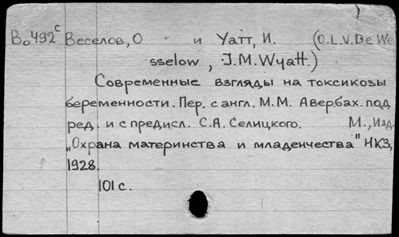 Во492с Веселов, О и Уатт, И. (O.L.V.De We
sselow, J.M.Wyatt.)
Современные взгляды на токсикозы
беременности. Пер. с англ. М.М. Авербах. под
ред. и с предисл. С.А. Селицкого. М., Изд.
„Охрана материнства и младенчества" НКЗ,
1928.
101 с.